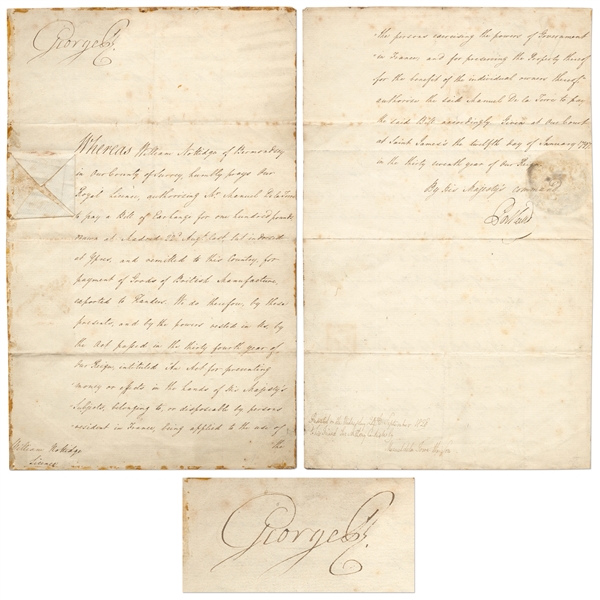 George R.
Whereas William Nottidge of Bermondsey
in Our County of Surrey, humbly prays Our
Royal Licence, authorising Mr. Manuel De la Torre
to pay a Bill of Exchange for one hundred pounds
drawn at Madrid 22d. Augt. last, but indorsed
at Ypres, and remitted to this Country, for
payment of Goods of British Manufacture,
exported to Flanders. We do therefore, by these
presents, and by the powers vested in Us, by
the Act passed in the thirty fourth year of
Our Reign, intituled An Act for preventing
money or effects in the hands of His Majesty's
Subjects, belonging to, or disposable by persons
resident in France, being applied to the use of
the
William Nottidge
Licence
the persons exercising the powers of Government
in France, and for preserving the Property thereof
for the benefit of the individual owners thereof
authorise the said Manuel De la Torre to pay
the said Bill accordingly. Given at Our Court
at Saint James's the twelfth day of January 1797
in the thirty seventh year of Our Reign
By His Majesty's command
Portland
George R.